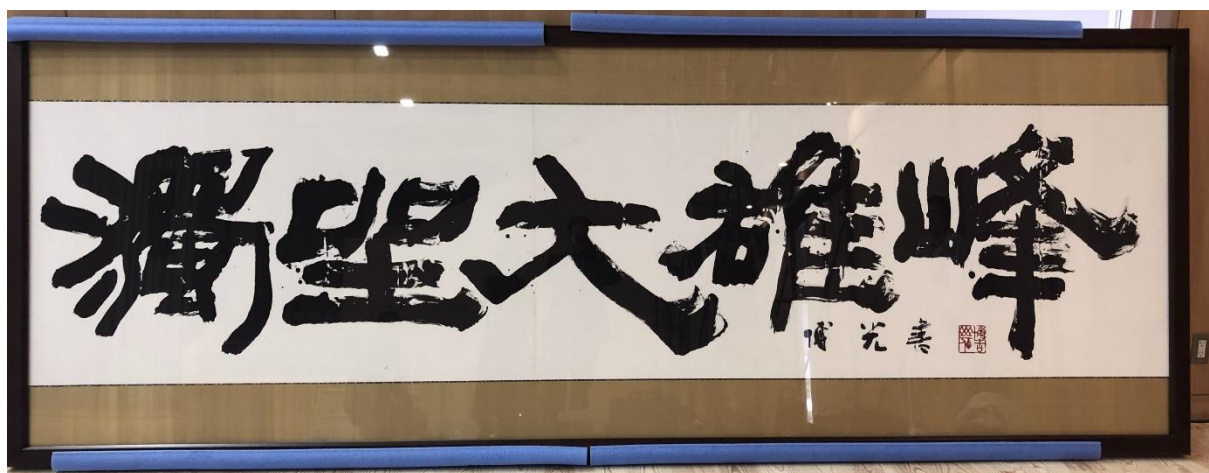 獨坐大雄峰
博光書